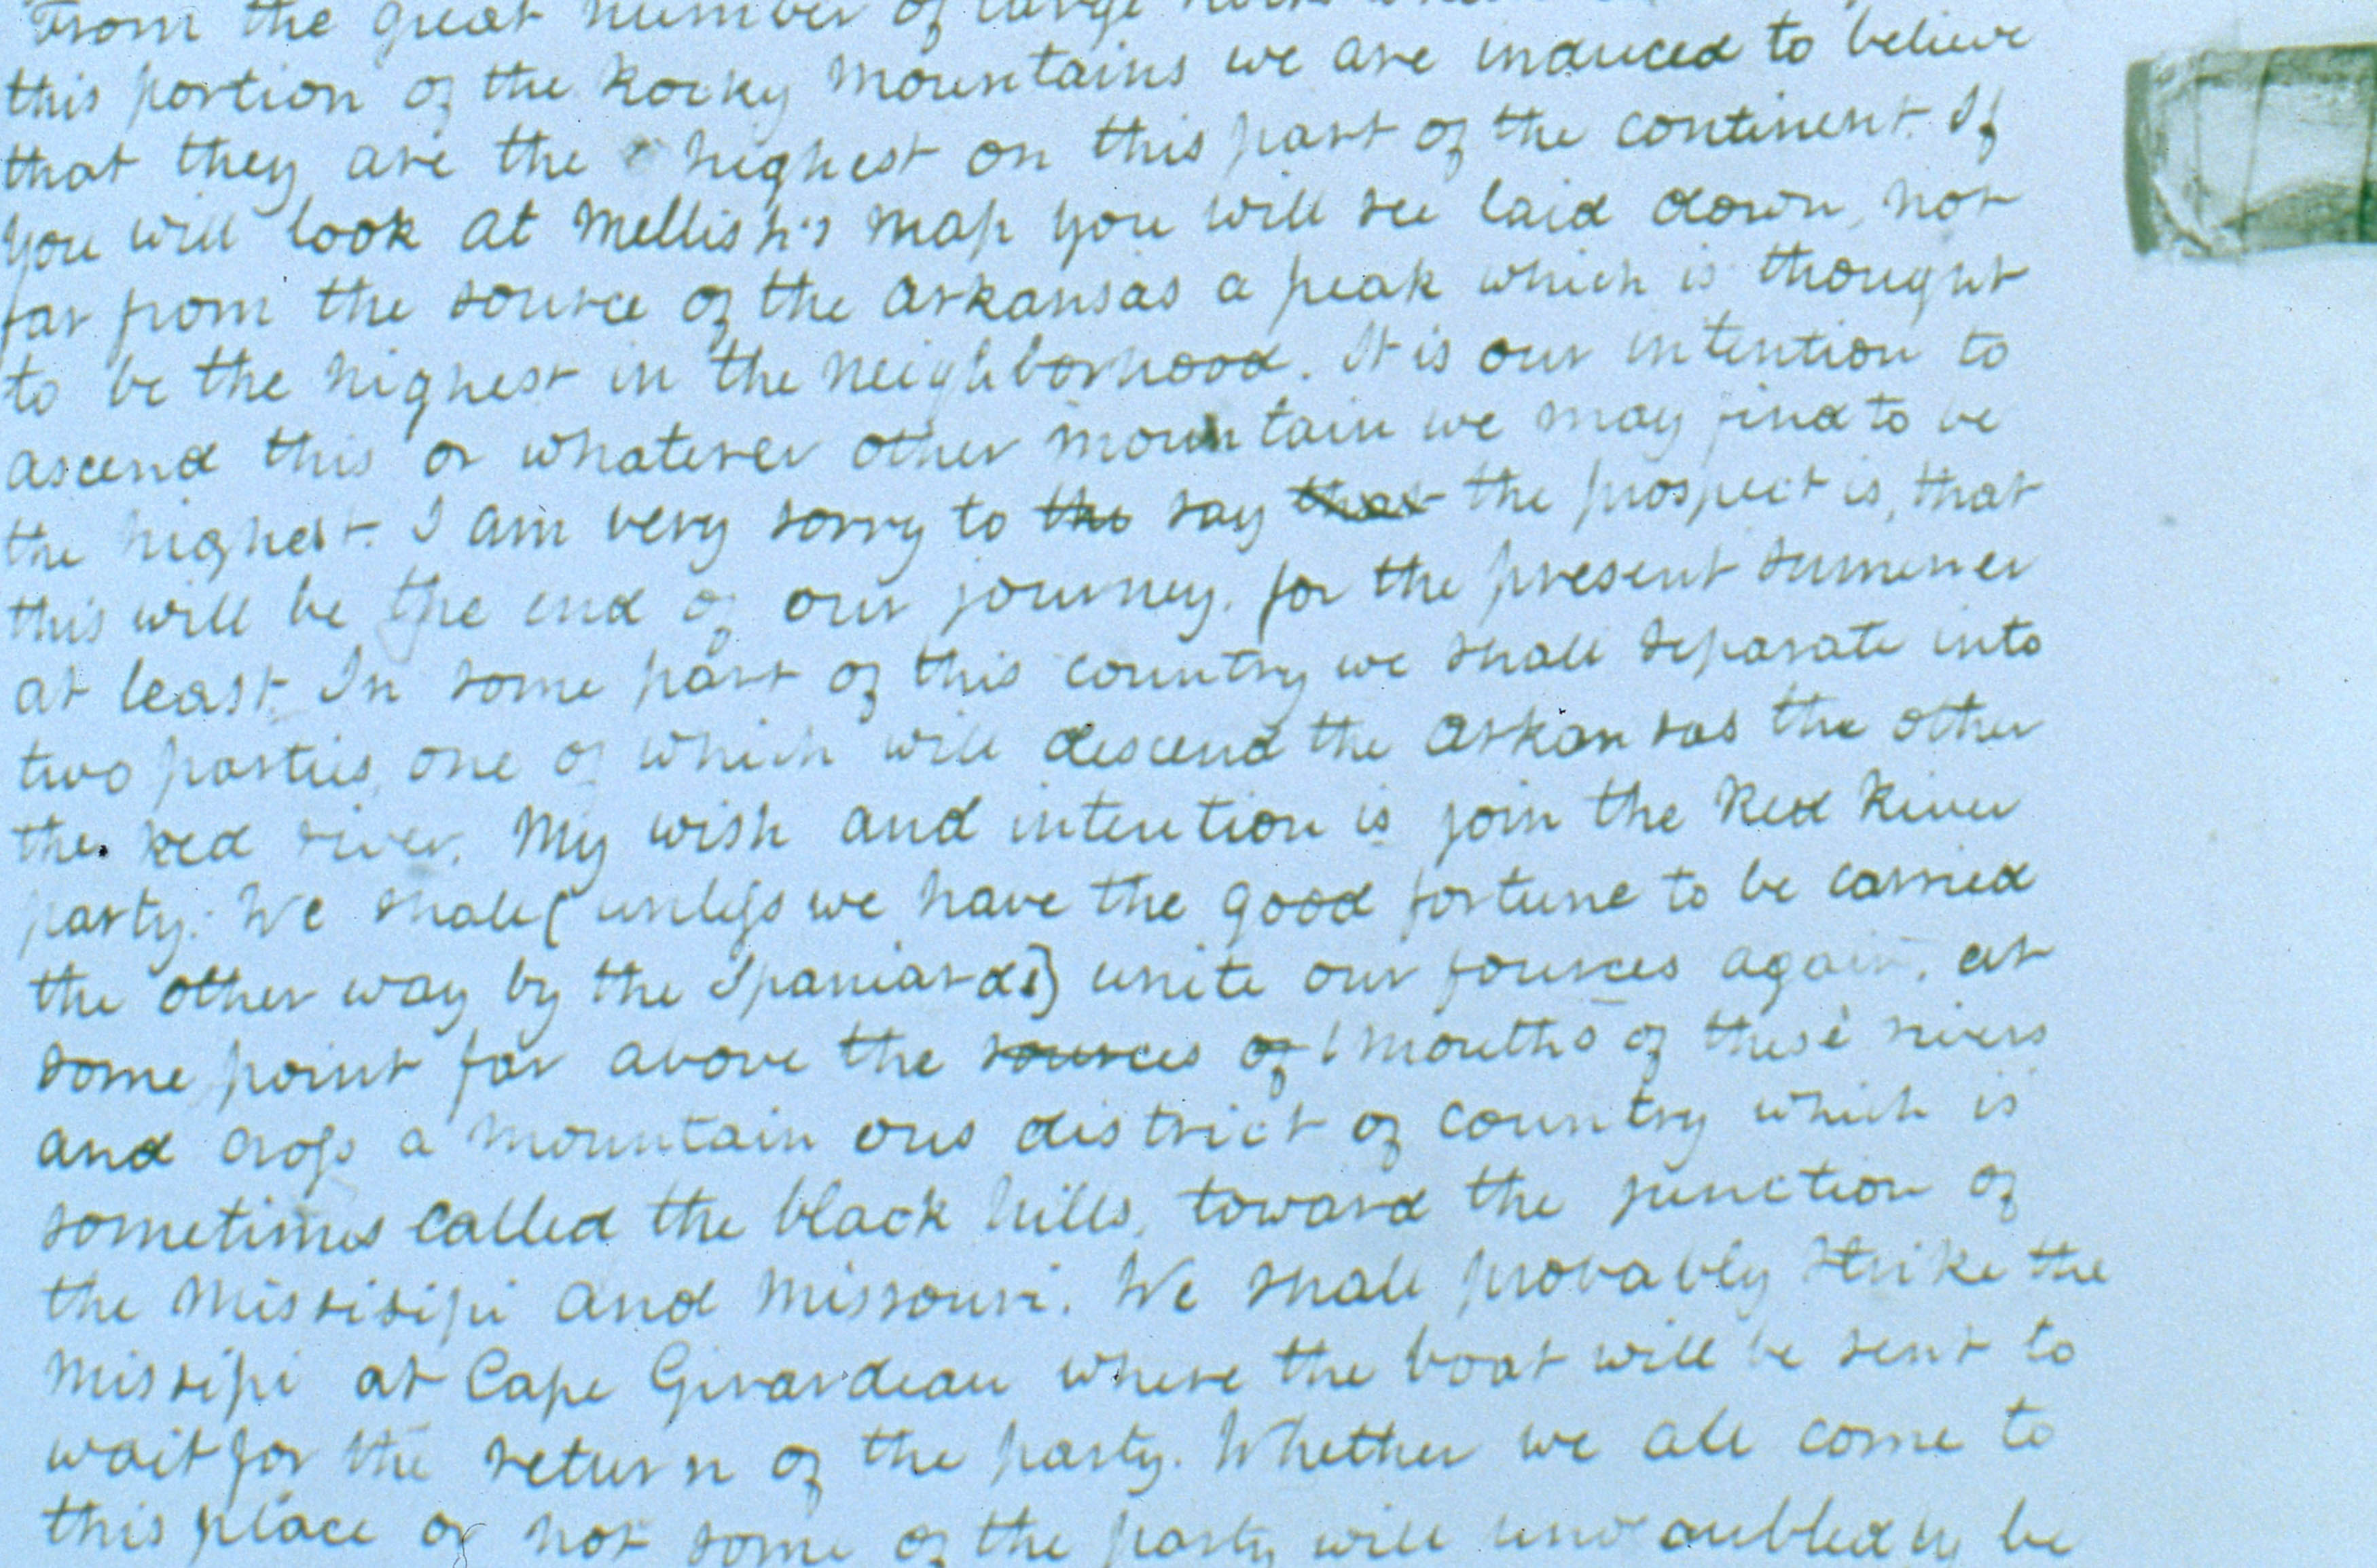 From the great number of large
this portion of the Rocky Mountains we are induced to believe
that they are the highest on this part of the continent. If
you will look at Mellish's map you will see laid down, not
far from the source of the Arkansas a peak which is thought
to be the highest in the neighborhood. It is our intention to
ascend this or whatever other mountain we may find to be
the highest. I am very sorry to the say that the prospect is, that
this will be the end of our journey. for the present summer
at least. In some part of this country we shall separate into
two parties, one of which will descend the Arkansas the other
the Red river. My wish and intention is join the Red River
party. We shall (unless we have the good fortune to be carried
the other way by the Spaniards) unite our fources again, at
some point far above the sources of mouths of these rivers
and cross a mountain ous district of country which is
sometimes called the black hills, toward the junction of
the Missisipi and Missouri. We shall probably strike the
Missipi at Cape Girardeau where the boat will be sent to
wait for the return of the party. Whether we all come to
this place or not some of the party will undoubledly be